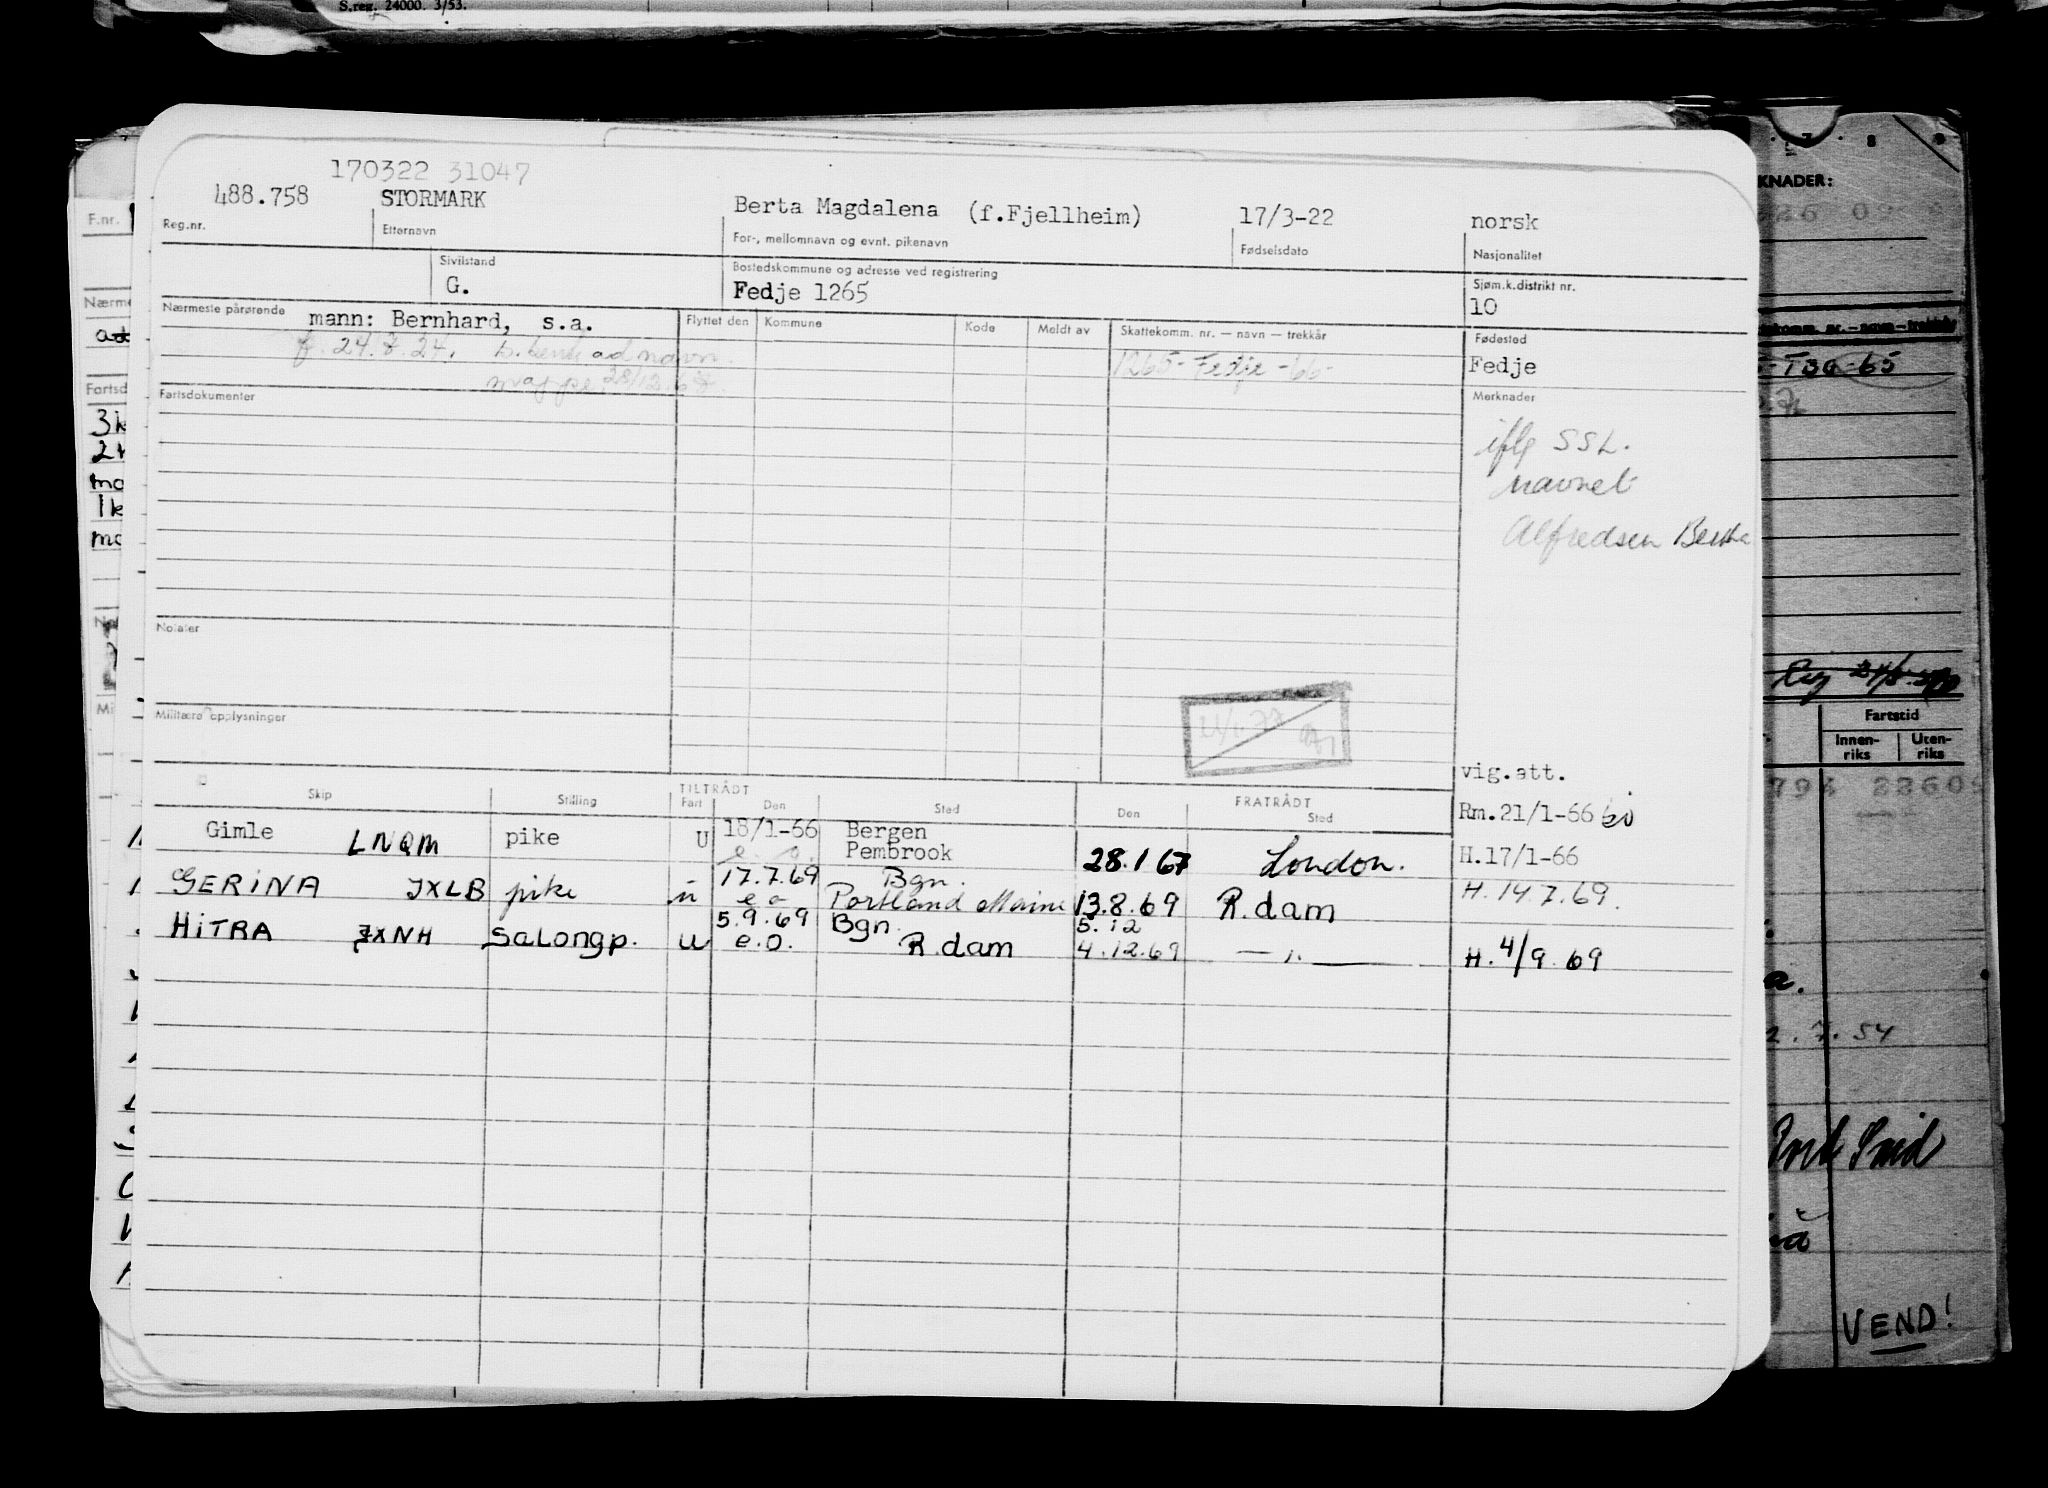 S.reg. 24000. 3/53.
170322 31047
488.758 STORMARK Berta Magdalena (f.Fjellheim) 17/3-22 norsk
Reg.nr. Etternavn For-, mellomnavn og evnt. pikenavn Fødselsdato Nasjonalitet
Sivilstand Bostedskommune og adresse ved registrering Sjøm.k.distrikt nr.
G. Fedje 1265 10
Nærmeste pårørende mann: Bernhard, s.a. Flyttet den Kommune Kode Meldt av Skattekomm. nr. — navn — trekkår Fødested
f. 24. 8. 24. ad navn 1265-Fedje-66- Fedje
mappe 28/12.
Fartsdokumenter Merknader
iflg SSL.
navnet
Alfredsen Berta
Notater
Militære opplysninger
vig.att.
Skip Stilling TILTRÅDT FRATRÅDT
Fart Den Sted Den Sted
Gimle LNQM pike U 18/1-66 Bergen Rm.21/1-66
e. o. Pembrook 28.1 67 London. H.17/1-66
GERINA JXLB pike u 17.7.69 Bgn. H. 14.7.69.
e o Portland Maine 13.8.69 R.dam
HITRA JXNH Salongp. u 5.9.69 Bgn. 5.12
e.o. R.dam 4.12.69 — ,, — H. 4/9.69
F.nr.
3
2
1
KNADER:
-65
Fartstid
Innen-riks Uten-riks
2.7.54
VEND!